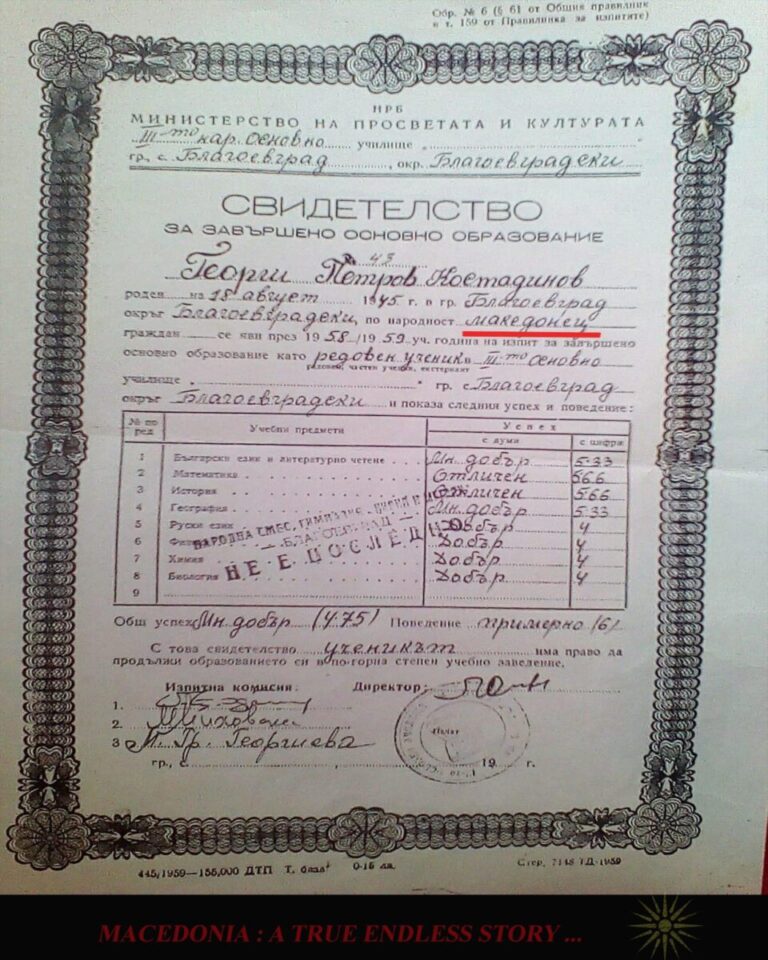 Обр. № 6 (§ 61 от Общия правилник
и т. 159 от Правилника за изпитите)
НРБ
МИНИСТЕРСТВО НА ПРОСВЕТАТА И КУЛТУРАТА
III-то нар. основно училище „
гр., с. Благоевград, окр. Благоевградски
СВИДЕТЕЛСТВО
ЗА ЗАВЪРШЕНО ОСНОВНО ОБРАЗОВАНИЕ
№ 43
Георги Петров Костадинов
роден на 18 август 1945 г. в гр. Благоевград
окръг Благоевградски, по народност македонец
граждан се яви през 1958/1959 уч. година на изпит за завършено
основно образование като редовен ученик в III-то основно
редовен, частен ученик, екстернат
училище „ “ гр. с. Благоевград
окръг Благоевградски и показа следния успех и поведение:
№ по ред Учебни предмети Успех
с думи с цифри
1 Български език и литературно четене Мн. добър 5·33
2 Математика Отличен 5·66
3 История Отличен 5·66
4 География Мн. добър 5·33
5 Руски език Добър 4
6 Добър 4
7 Химия Добър 4
8 Биология Добър 4
9
НАРОДНА СМЕС. ГИМНАЗИЯ
— БЛАГОЕВГРАД —
Общ успех Мн. добър (4·75) Поведение примерно (6)
С това свидетелство ученикът има право да
продължи образованието си в по-горна степен учебно заведение.
Изпитна комисия: Директор:
1.
2.
3 Гр. Георгиева
Печат
гр., с. 19 г.
445/1959—155,000 ДТП Т. 0·15 лв. Стер. 7148 ТД·1959
MACEDONIA : A TRUE ENDLESS STORY ...